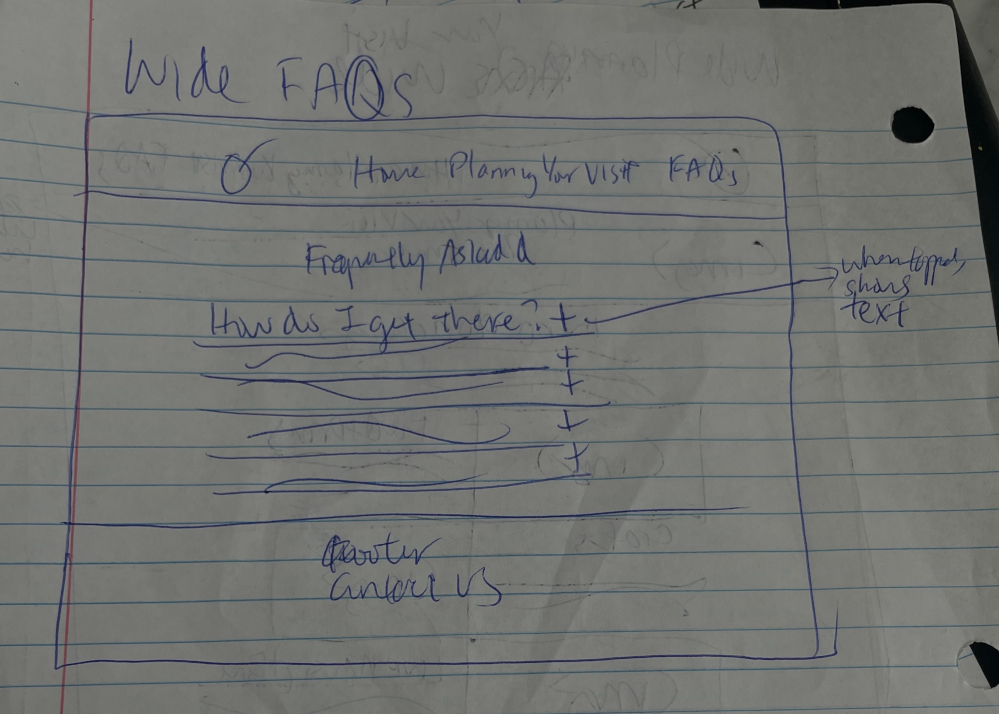 Wide FAQs
Home Planning Your Visit FAQs
Frequently Asked Q
How do I get there? +
when tapped,
shows
text
+
+
+
+
Footer
Contact US